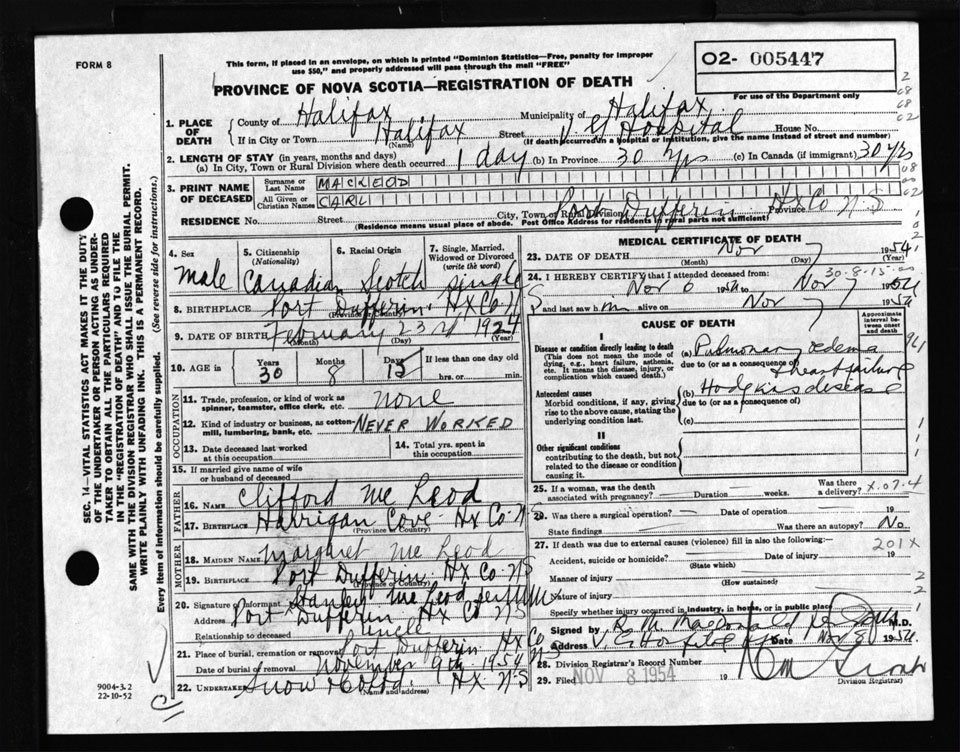 FORM 8
This form, if placed in an envelope, on which is printed "Dominion Statistics—Free, penalty for improper
use $50," and properly addressed will pass through the mail "FREE"
O2- 005447
For use of the Department only
PROVINCE OF NOVA SCOTIA—REGISTRATION OF DEATH
1. PLACE OF DEATH
County of Halifax Municipality of Halifax
If in City or Town Halifax Street V G Hospital House No.
(Name) (If death occurred in a hospital or institution, give the name instead of street and number)
2. LENGTH OF STAY (in years, months and days)
(a) In City, Town or Rural Division where death occurred 1 day (b) In Province 30 yrs (c) In Canada (if immigrant) 30 yrs
3. PRINT NAME OF DECEASED
Surname or Last Name MACKLEOD
All Given or Christian Names CARL
RESIDENCE No. Street City, Town or Rural Division Port Dufferin Province Hx Co N-S
(Residence means usual place of abode. Post Office Address for residents in rural parts not sufficient)
4. Sex Male
5. Citizenship (Nationality) Canadian
6. Racial Origin Scotch
7. Single, Married, Widowed or Divorced (write the word) Single
8. BIRTHPLACE Port Dufferin Hx Co N
9. DATE OF BIRTH February 23rd 1924
(Month) (Day) (Year)
10. AGE in Years 30 Months 8 Days 15 If less than one day old
hrs. or min.
OCCUPATION
11. Trade, profession, or kind of work as spinner, teamster, office clerk, etc. none
12. Kind of industry or business, as cotton-mill, lumbering, bank, etc. NEVER WORKED
13. Date deceased last worked at this occupation
14. Total yrs. spent in this occupation
15. If married give name of wife or husband of deceased
FATHER
16. NAME Clifford Mc Leod
17. BIRTHPLACE Harrigan Cove Hx Co N-S
(Province or Country)
MOTHER
18. MAIDEN NAME Margaret Mc Leod
19. BIRTHPLACE Port Dufferin Hx Co NS
(Province or Country)
20. Signature of Informant Stanley Mc Leod
Address Port Dufferin Hx Co NS
Relationship to deceased Uncle
21. Place of burial, cremation or removal Port Dufferin Hx Co NS
Date of burial or removal November 9th 1954
22. UNDERTAKER Snow & Co Ltd. Hx N-S
(Name and address)
MEDICAL CERTIFICATE OF DEATH
23. DATE OF DEATH Nov 7 1954
(Month) (Day) (Year)
30-8-15
24. I HEREBY CERTIFY that I attended deceased from:
Nov 6 1954 to Nov 7 1954
and last saw him alive on Nov 7 1954
CAUSE OF DEATH
Approximate interval between onset and death
I
Disease or condition directly leading to death
(This does not mean the mode of dying, e.g., heart failure, asthenia, etc. It means the disease, injury, or complication which caused death.)
(a) Pulmonary oedema
due to (or as a consequence of) & heart failure
Antecedent causes
Morbid conditions, if any, giving rise to the above cause, stating the underlying condition last.
(b) Hodgkins disease
due to (or as a consequence of)
(c)
II
Other significant conditions
contributing to the death, but not related to the disease or condition causing it.
25. If a woman, was the death associated with pregnancy? Duration weeks. Was there a delivery? X.07.4
26. Was there a surgical operation? Date of operation 19
State findings Was there an autopsy? No
27. If death was due to external causes (violence) fill in also the following: 201X
Accident, suicide or homicide? Date of injury 19
(State which)
Manner of injury
(How sustained)
Nature of injury
Specify whether injury occurred in industry, in home, or in public place
Signed by R. M. MacDonald M.D.
Address V. G Hospital Hfx Date Nov 8 1954
28. Division Registrar's Record Number
29. Filed NOV 8 1954 19
Division Registrar
SEC. 14—VITAL STATISTICS ACT MAKES IT THE DUTY
OF THE UNDERTAKER OR PERSON ACTING AS UNDER-
TAKER TO OBTAIN ALL THE PARTICULARS REQUIRED
IN THE "REGISTRATION OF DEATH" AND TO FILE THE
SAME WITH THE DIVISION REGISTRAR WHO SHALL ISSUE THE BURIAL PERMIT.
WRITE PLAINLY WITH UNFADING INK. THIS IS A PERMANENT RECORD.
Every item of information should be carefully supplied. (See reverse side for instructions.)
9004-3.2
22-10-52